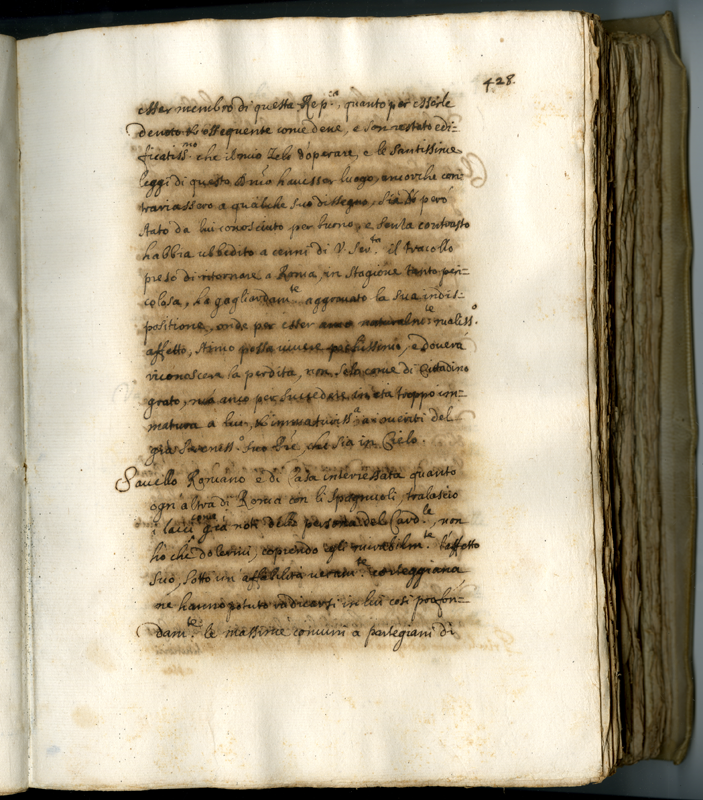 428.
esser membro di questa Rep.ca, quanto per esserle
devoto et ossequente come deve, e son restato edi-
ficatiss.mo che il mio Zelo d'operare, e le Santissime
leggi di questo Dom.o havesser luogo, ancorche con-
trariassero a qualche suo dissegno, sia però
stato da lui conosciuto per buono, e senza contrasto
habbia ubbedito a cenni di V. Ser.tà il tracollo
preso di ritornare a Roma, in stagione tanto peri-
colosa, ha gagliardam.te aggravato la sua indis-
positione, onde per esser naturalm.te maliss.o
affetto, stimo possa vivere pochissimo, e doverà
riconoscere la perdita, non solo come di Cittadino
grato, ma anco per succedere in età troppo im-
matura a lui, et immaturiss.a a meriti del
già Sereniss.o suo Pré, che sia in Cielo.
Savello Romano e di Casa interessata quanto
ogn'altra di Roma con li Spagnuoli, tralascio
i lacci come già noti della persona del Card.le, non
hò che dolermi, coprendo egli mirabilm.te l'affetto
suo, sotto un affabilità veram.te corteggiana
ne hanno potuto radicarsi in lui così profon-
dam.te le massime comuni a partegiani di